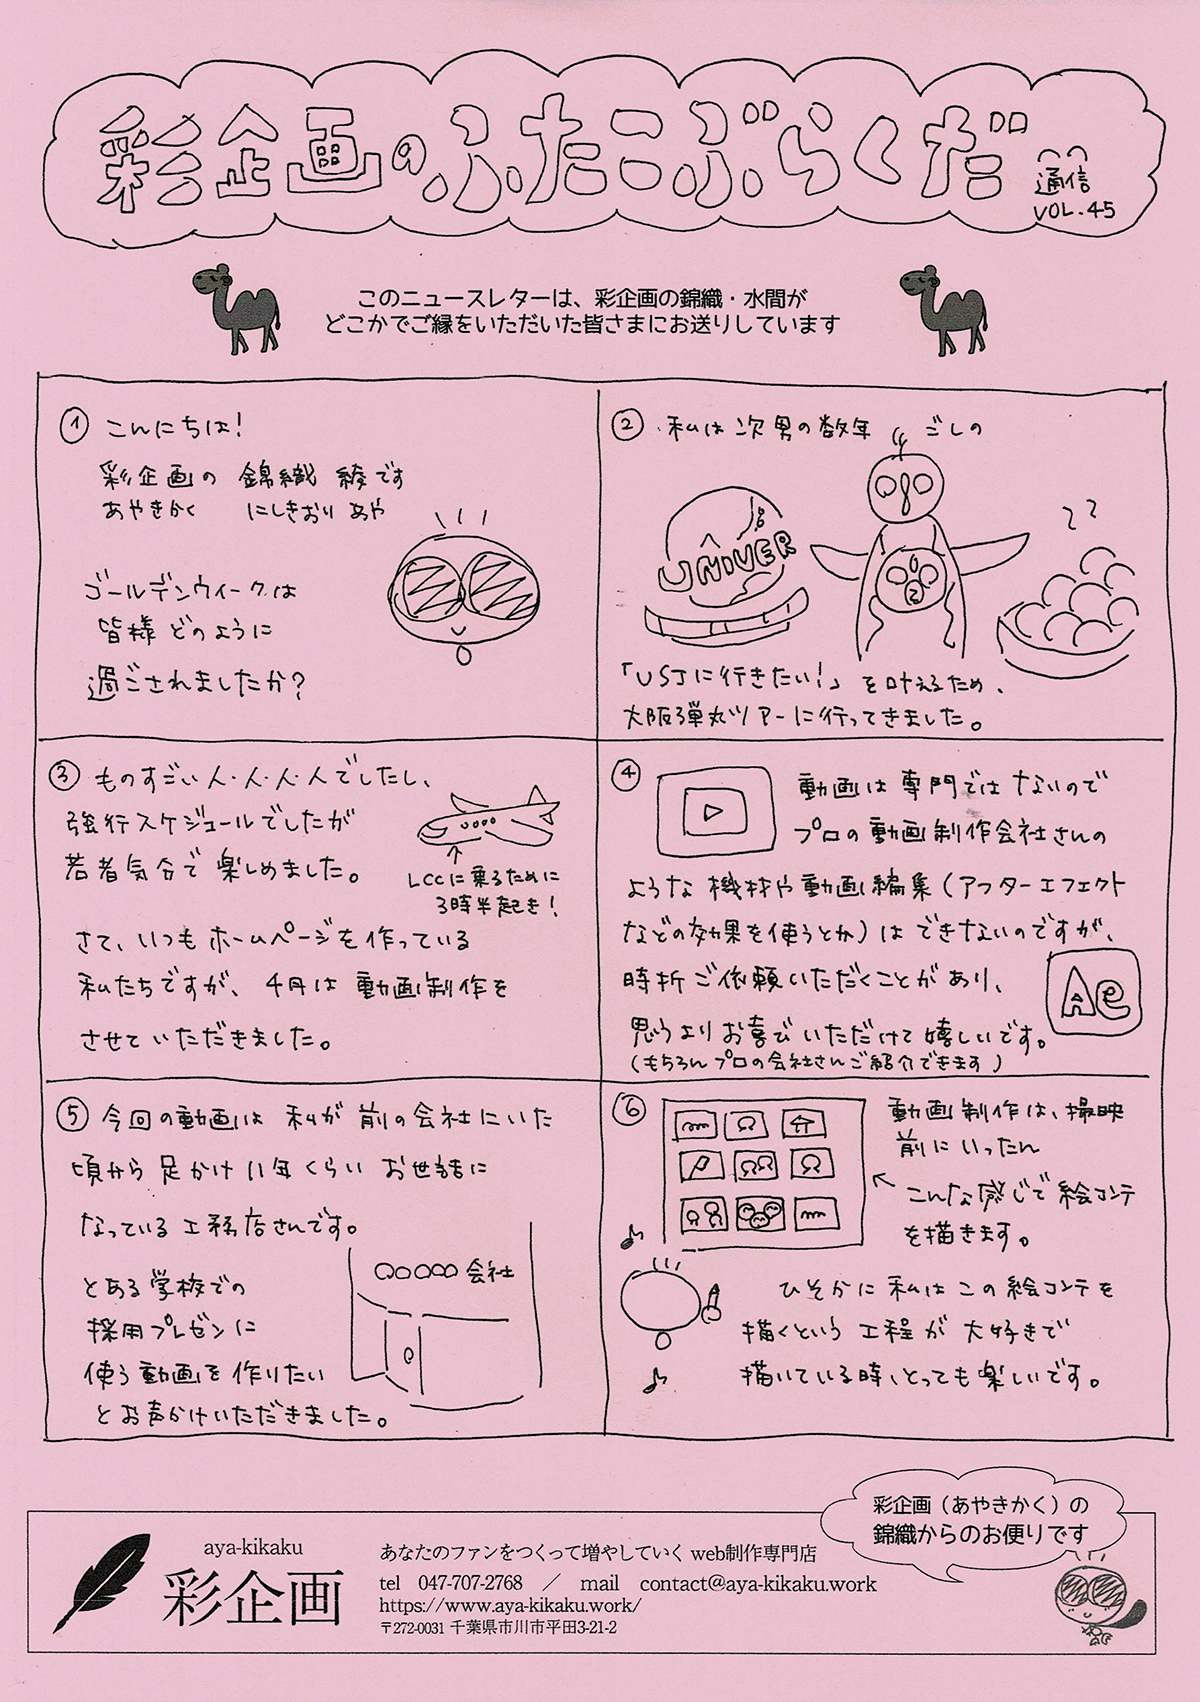 彩企画のふたこぶらくだ
通信
VOL.45
このニュースレターは、彩企画の錦織・水間が
どこかでご縁をいただいた皆さまにお送りしています
① こんにちは!
彩企画の 錦織 綾です
あやきかく にしきおり あや
ゴールデンウィークは
皆様 どのように
過ごされましたか?
② 私は 次男の数年ごしの
UNIVER
「USJに行きたい!」を叶えるため、
大阪弾丸ツアーに行ってきました。
③ ものすごい人・人・人・人でしたし、
強行スケジュールでしたが
若者気分で楽しめました。
LCCに乗るために
3時半起き!
さて、いつもホームページを作っている
私たちですが、4月は動画制作を
させていただきました。
④ 動画は専門ではないので
プロの動画制作会社さんの
ような機材や動画編集(アフターエフェクト
などの効果を使うとか)はできないのですが、
時折ご依頼いただくことがあり、
Ae
思うよりお喜びいただけて嬉しいです。
(もちろんプロの会社さんご紹介できます)
⑤ 今回の動画は私が前の会社にいた
頃から足かけ11年くらいお世話に
なっている工務店さんです。
○○○○○会社
とある学校での
採用プレゼンに
使う動画を作りたい
とお声かけいただきました。
⑥ 動画制作は、撮映
前にいったん
こんな感じで絵コンテ
を描きます。
ひそかに私はこの絵コンテを
描くという工程が大好きで
描いている時、とっても楽しいです。
彩企画(あやきかく)の
錦織からのお便りです
aya-kikaku
彩企画
あなたのファンをつくって増やしていく web制作専門店
tel 047-707-2768 / mail contact@aya-kikaku.work
https://www.aya-kikaku.work/
〒272-0031 千葉県市川市平田3-21-2